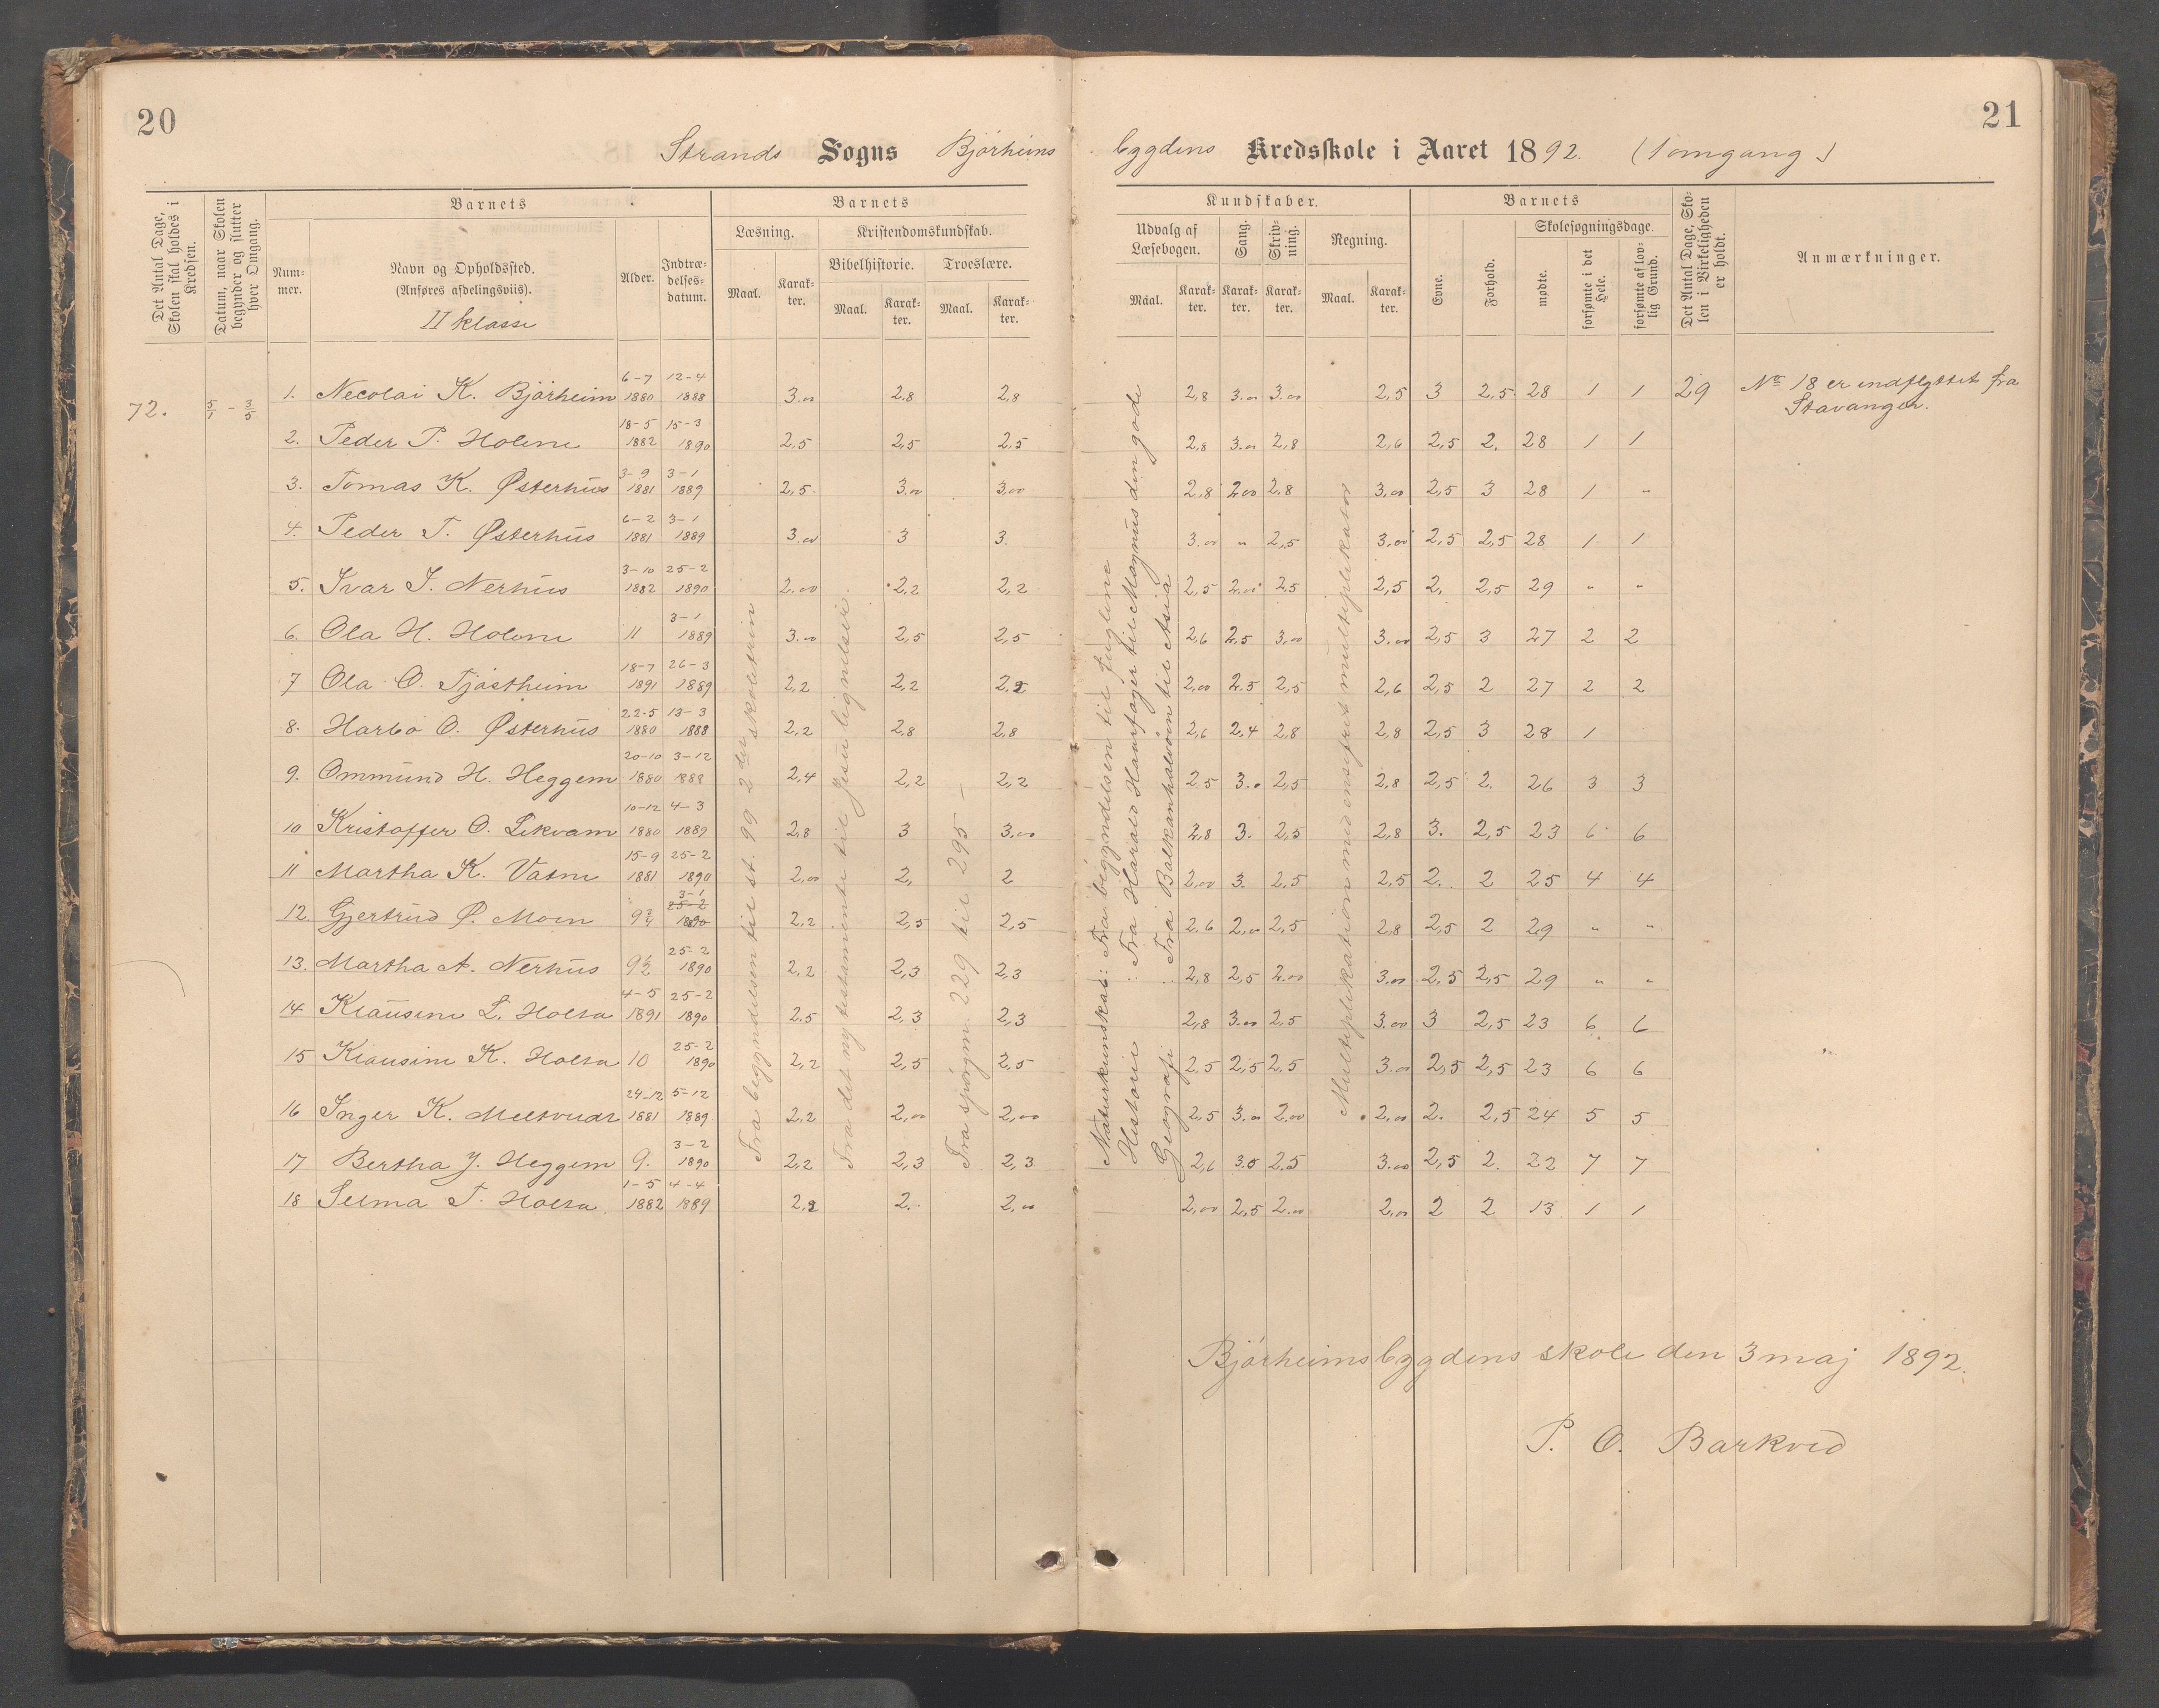 20
Strands Sogns Bjórheims
Det Antal Dage, Skolen skal holdes i Kredsen.
Datum, naar Skolen begynder og slutter hver Omgang.
Barnets
Nummer.
Navn og Opholdssted.
(Anføres afdelingsviis).
II klasse
Alder.
Indtrædelsesdatum.
Barnets
Læsning.
Maal.
Karakter.
Kristendomskundskab.
Bibelhistorie.
Maal.
Karakter.
Troeslære.
Maal.
Karakter.
72. 5/1 - 3/5
1. Necolai K. Bjórheim 6-7 1880 12-4 1888 3.00 2.8 2,8
2. Peder P. Holene 18-5 1882 15-3 1890 2,5 2,5 2,5
3. Tomas K. Østerhus 3-9 1881 3-1 1889 2,5 3.00 3,00
4. Peder T. Østerhus 6-2 1881 3-1 1889 3.00 3 3.
5. Ivar I. Nerhus 3-10 1882 25-2 1890 2,00 2,2 2,2
6. Ola H. Holene 11 3-1 1889 3.00 2,5 2,5
7 Ola O. Tjóstheim 18-7 1891 26-3 1889 2,2 2,2 2,2
8. Harbo O. Østerhus 22-5 1880 13-3 1888 2,2 2,8 2,8
9. Ommund H. Heggem 20-10 1880 3-12 1888 2,4 2,2 2,2
10 Kristoffer O. Lekvam 10-12 1880 4-3 1889 2,8 3 3.00
11 Martha K. Vatne 15-9 1881 25-2 1890 2,00 2, 2
12. Gjertrud Ø. Moen 9 3/4 3-1 25-2 1890 2,2 2,5 2,5
13. Martha A. Nerhus 9 1/2 25-2 1890 2,2 2,3 2,3
14 Klausine L. Holta 4-5 1891 25-2 1890 2.5 2,3 2,3
15 Klausine K. Holta 10 25-2 1890 2,2 2,5 2,5
16 Inger K. Meltvedt 24-12 1881 5-12 1889 2,2 2,00 2,00
17 Bertha J. Heggem 9. 3-2 1890 2,2 2,3 2,3
18 Selma T. Holta. 1-5 1882 4-4 1889 2,2 2. 2,00
Fra begyndelsen til st. 99 2den skoletrin
Fra det ny testamente til Jesu lignelser.
Fra spørgm. 229 til 295 -
21
bygdens Kredsskole i Aaret 1892. (1 omgang)
Kundskaber.
Udvalg af Læsebogen.
Maal.
Karakter.
Sang.
Karakter.
Skrivning.
Karakter.
Regning.
Maal.
Karakter.
Barnets
Evne.
Forhold.
Skolesøgningsdage.
mødte.
forsømte i det Hele.
forsømte af lovlig Grund.
Det Antal Dage, Skolen i Virkeligheden er holdt.
Anmærkninger.
2,8 3.00 3.00 2,5 3 2,5 28 1 1 29 No 18 er indflyttet fra Stavanger.
2,8 3.00 2,8 2,6 2,5 2. 28 1 1
2,8 2,00 2,8 3,00 2,5 3 28 1 "
3.00 " 2,5 3,00 2,5 2,5 28 1 1
2,5 2.00 2,5 2,5 2. 2,5 29 " "
2,6 2,5 3,00 3.00 2,5 3 27 2 2
2,00 2,5 2,5 2,6 2,5 2 27 2 2
2,6 2,4 2,8 2,8 2,5 3 28 1
2,5 3.0 2,5 2,8 2,5 2. 26 3 3
2,8 3. 2,5 2,8 3. 2,5 23 6 6
2,00 3. 2,5 2,5 2. 2 25 4 4
2.6 2,00 2,5 2,8 2,5 2 29 " "
2,8 2,5 2.00 3.00 2,5 2,5 29 " "
2,8 3.00 2,5 3.00 3 2,5 23 6 6
2.5 2,5 2.5 3.00 2,5 2,5 23 6 6
2,5 3.00 2.00 2,00 2. 2,5 24 5 5
2,6 3.0 2.5 3.00 2,5 2. 22 7 7
2,00 2,5 2.00 2,00 2 2 13 1 1
Naturkunskab: Fra begyndelsen til fuglene
Historie .. : Fra Harald Haarfager til Magnus den gode
Geografi .. Fra Balkanhalvøen til Asia
Multiplikation med ensifret multiplikator
Bjórheimsbygdens skole den 3 maj 1892.
P. O. Barkved